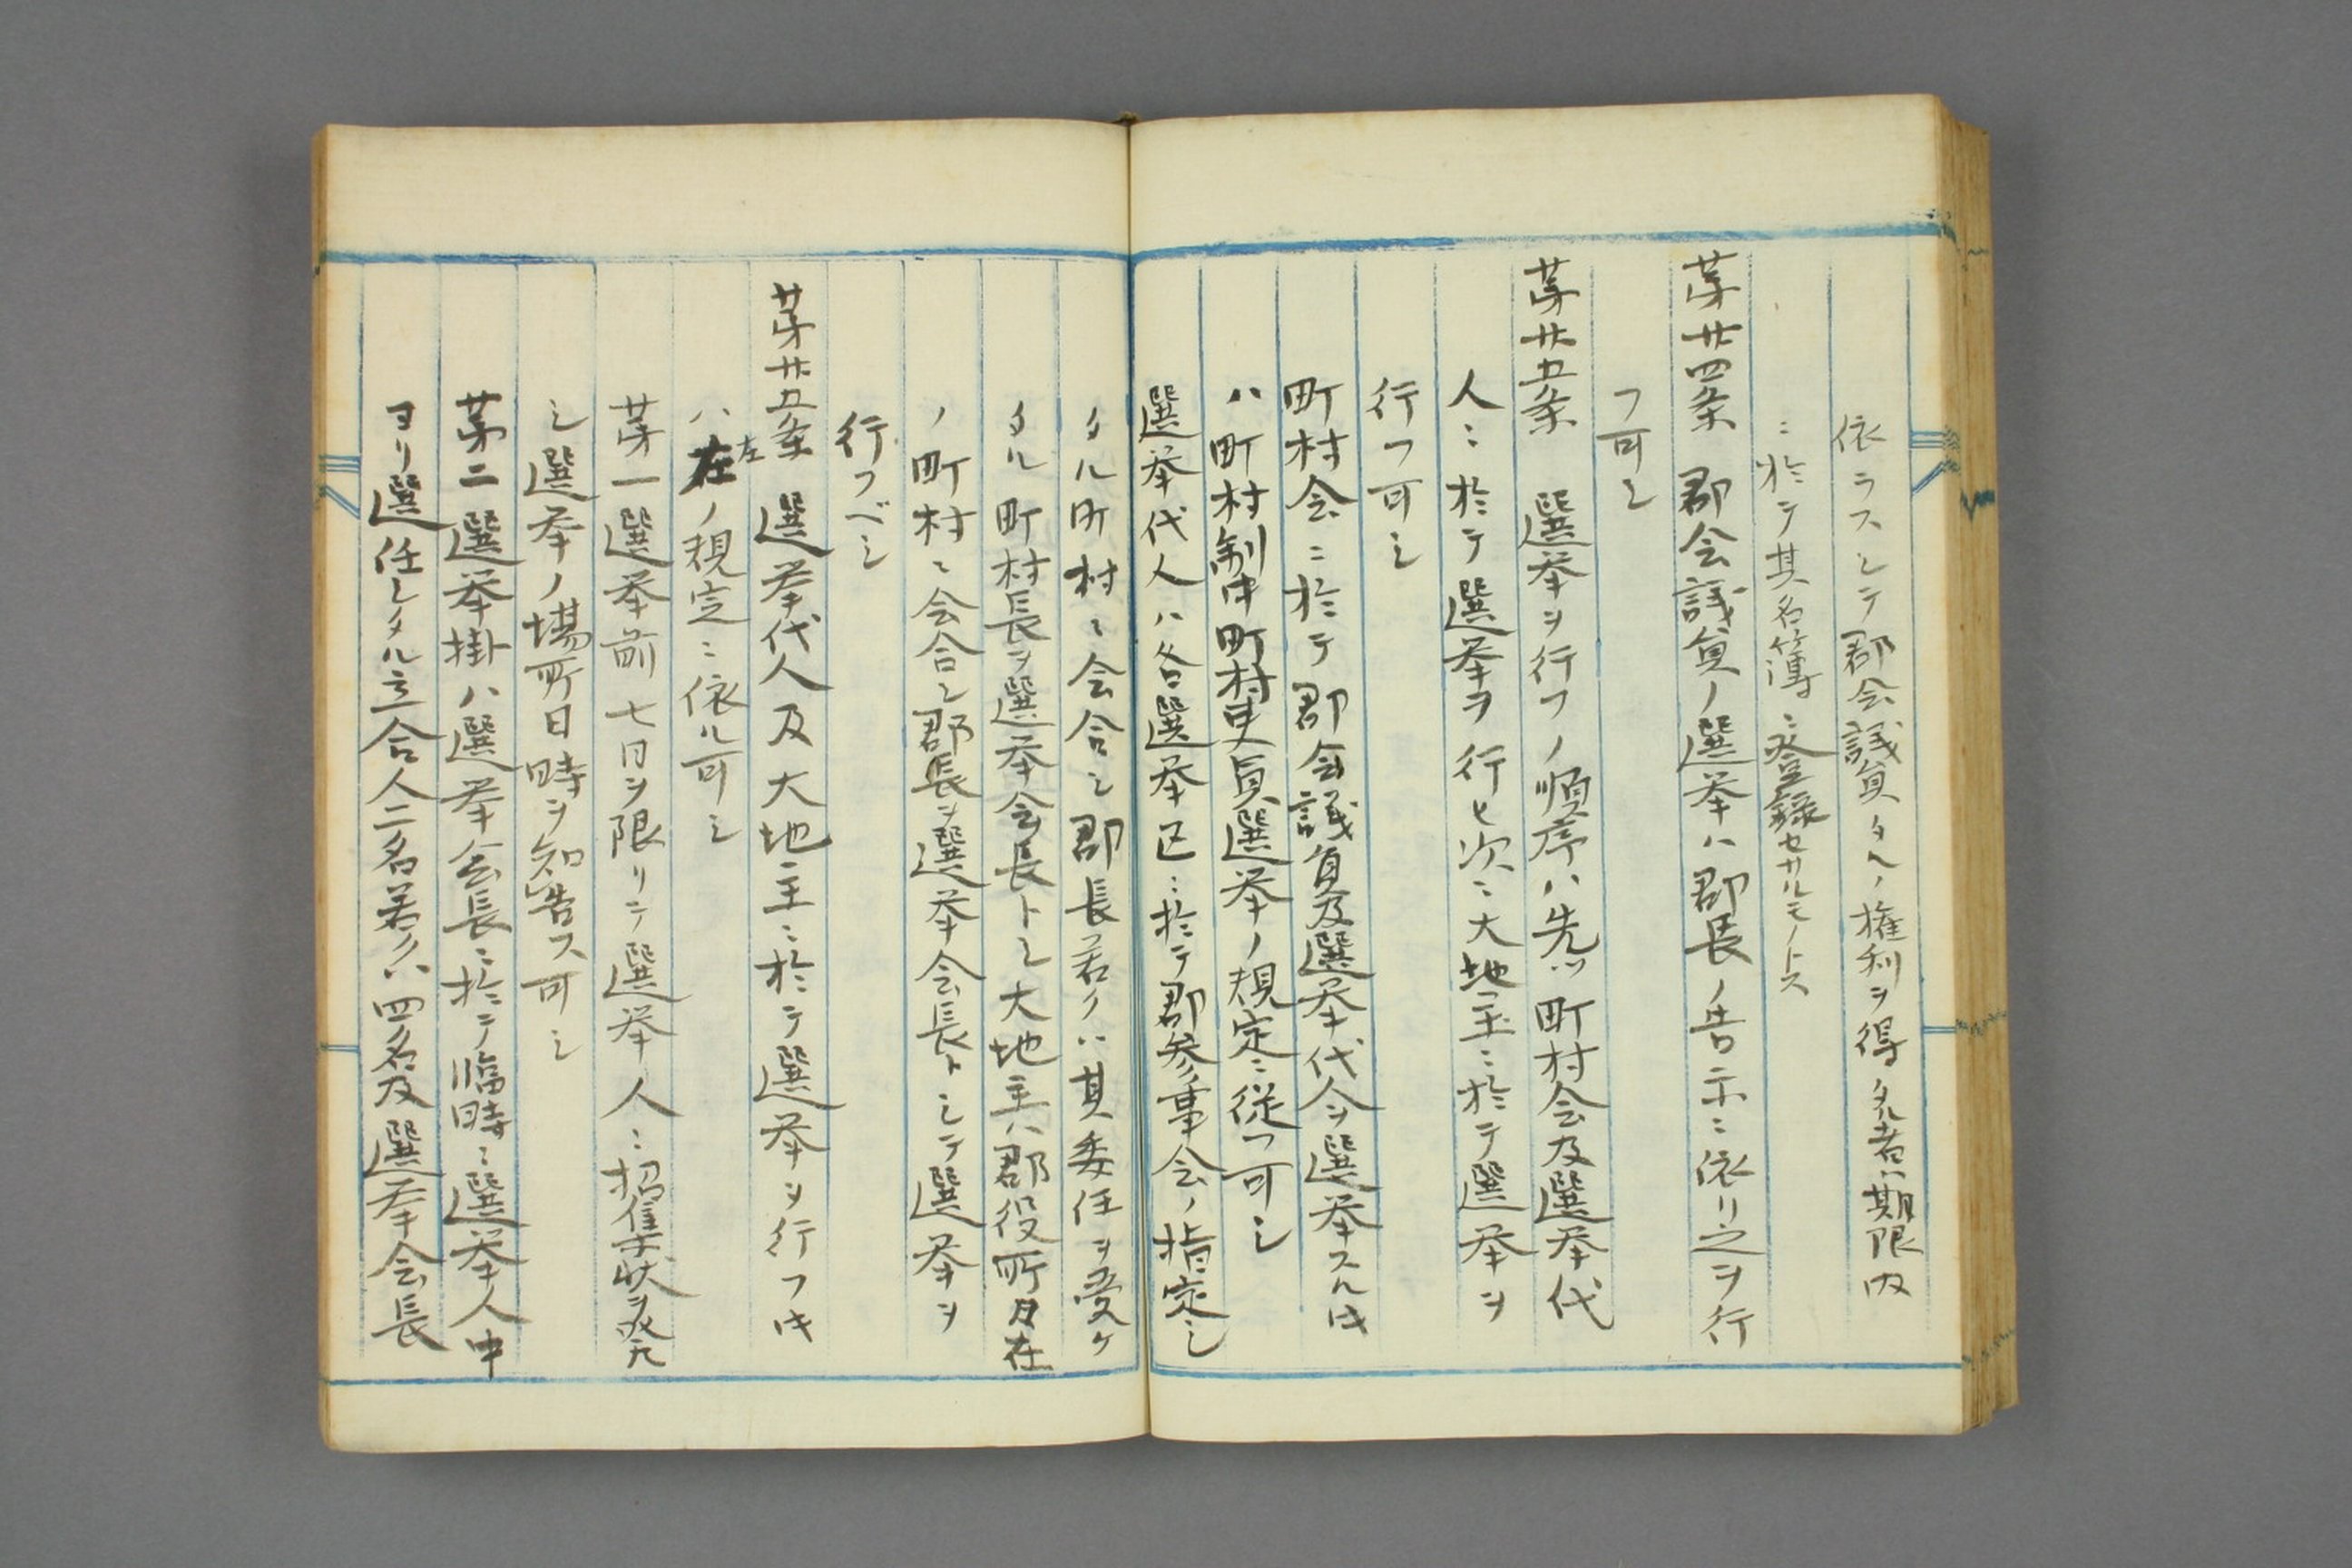 依ラスシテ郡会議員タルノ権利ヲ得タル者ハ期限内
ニ於テ其名簿ニ登録セサルモノトス
第廿四条 郡会議員ノ選挙ハ郡長ノ告示ニ依リ之ヲ行
フ可シ
第廿五条 選挙ヲ行フノ順序ハ先ツ町村会及選挙代
人ニ於テ選挙ヲ行ヒ次ニ大地主ニ於テ選挙ヲ
行フ可シ
町村会ニ於テ郡会議員及選挙代人ヲ選挙スル時
ハ町村制中町村吏員選挙ノ規定ニ従フ可シ
選挙代人ハ各選挙区ニ於テ郡参事会ノ指定シ
タル町村ニ会合シ郡長若クハ其委任ヲ受ケ
タル町村長ヲ選挙会長トシ大地主ハ郡役所所在
ノ町村ニ会合シ郡長ヲ選挙会長トシテ選挙ヲ
行フベシ
第廿五条 選挙代人及大地主ニ於テ選挙ヲ行フ時
ハ左ノ規定ニ依ル可シ
第一選挙前七日ヲ限リテ選挙人ニ招集状ヲ発
シ選挙ノ場所日時ヲ知告ス可シ
第二選挙掛ハ選挙会長ニ於テ臨時ニ選挙人中
ヨリ選任シタル立合人二名若クハ四名及選挙会長